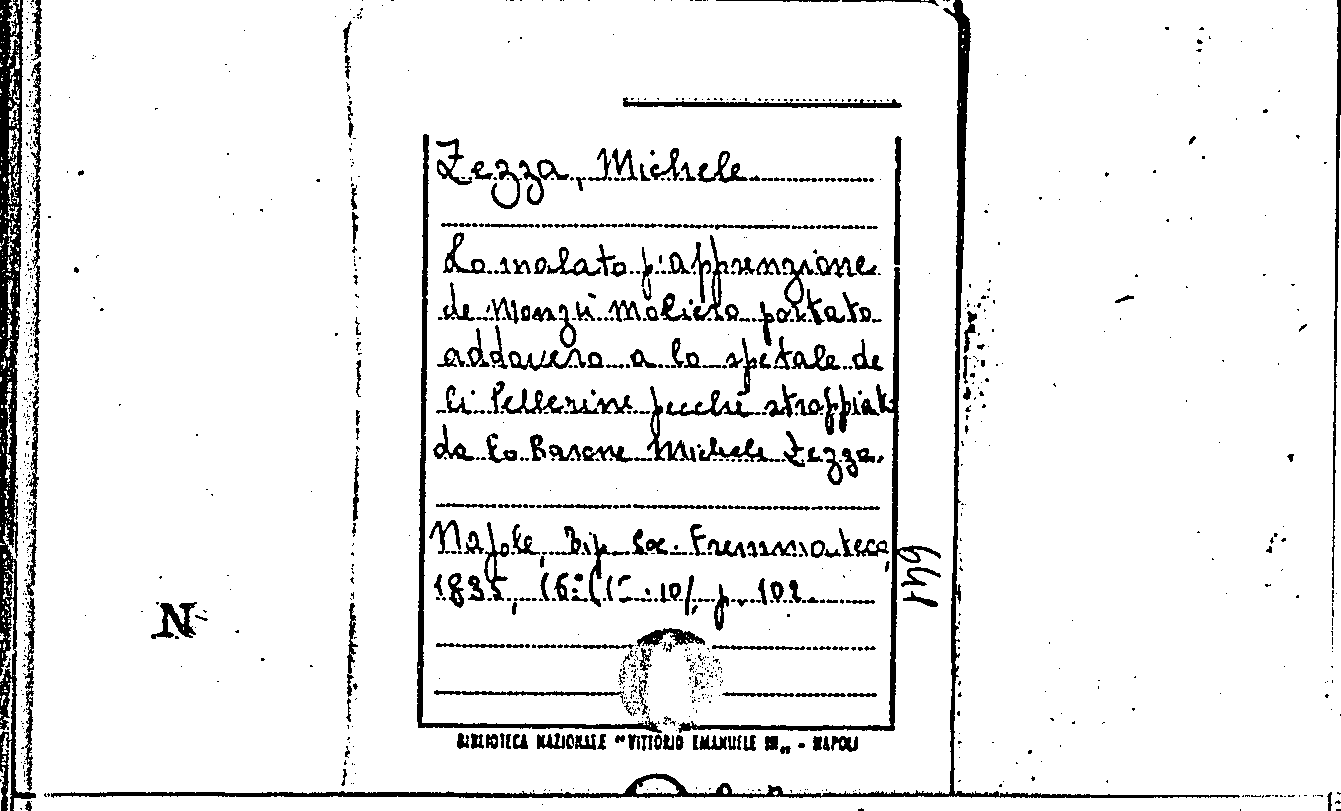 Zezza, Michele
Lo malato p'apprenzione
de Monzù Moliero portato
addavero a lo spetale de
li Pellerine pecché stroppiato
da lo Barone Michele Zezza.
Napole, Tip. Soc. Fremmateca,
1835, 16° (15·10), p. 102
641
N
BIBLIOTECA NAZIONALE "VITTORIO EMANUELE III„ - NAPOLI